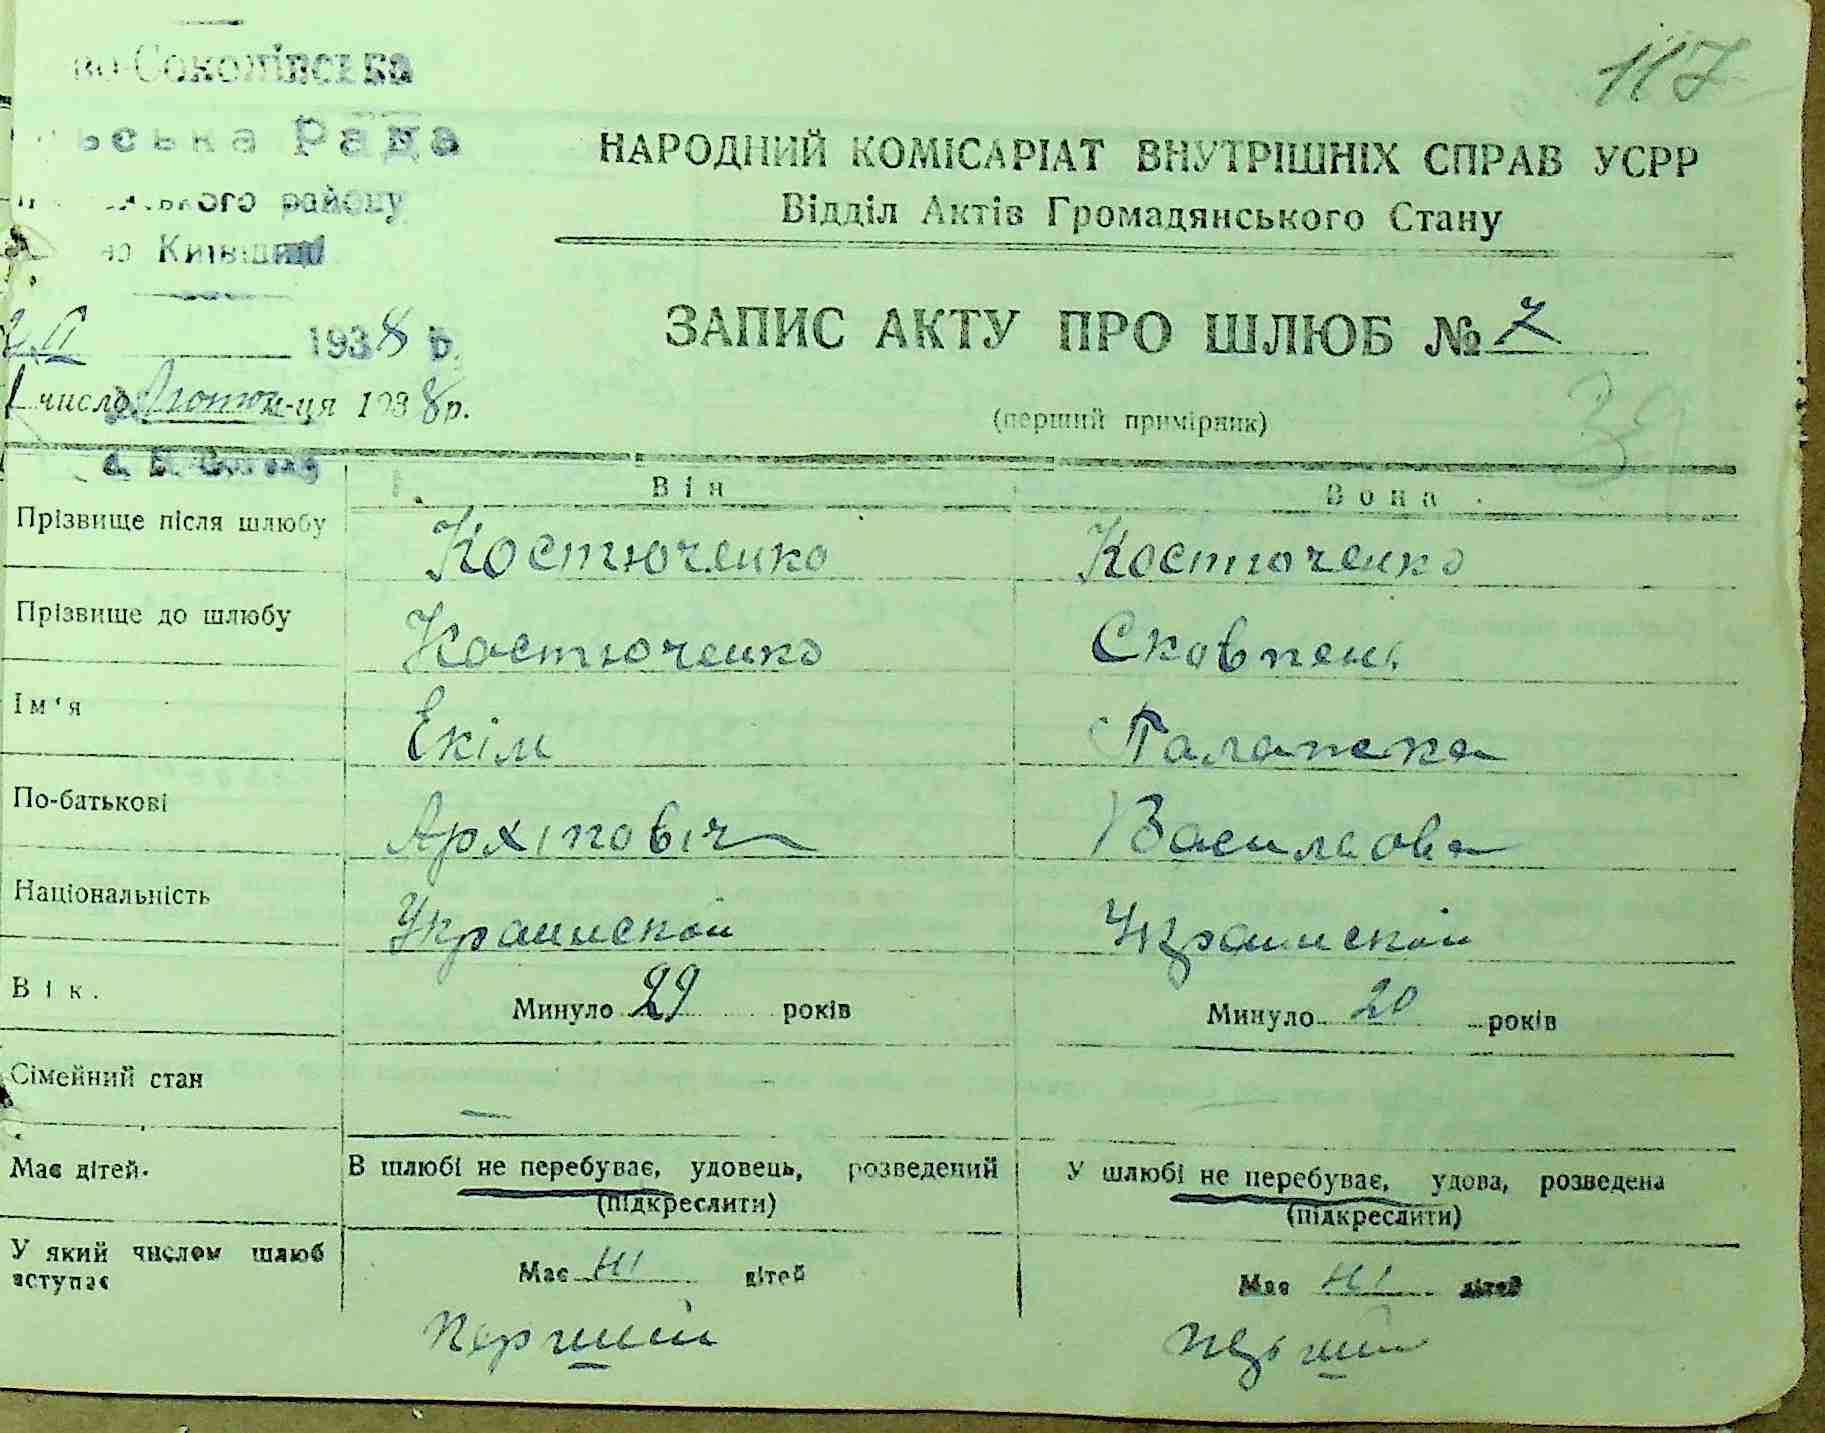 117
во-Соколівська
ська Рада
ого району
на Київщині
1938 р.
число Лютого м-ця 1938 р.
НАРОДНИЙ КОМІСАРІАТ ВНУТРІШНІХ СПРАВ УСРР
Відділ Актів Громадянського Стану
ЗАПИС АКТУ ПРО ШЛЮБ № 7
(перший примірник)
39
Він Вона
Прізвище після шлюбу Костюченко Костюченко
Прізвище до шлюбу Костюченко Сковпень
Ім'я Екім Палажка
По-батькові Архіповіч Васильовна
Національність Украинской Украинской
Вік. Минуло 29 років Минуло 20 років
Сімейний стан
Має дітей. В шлюбі не перебуває, удовець, розведений У шлюбі не перебуває, удова, розведена
(підкреслити) (підкреслити)
У який числом шлюб Має ні дітей Має ні дітей
вступає
першій перший